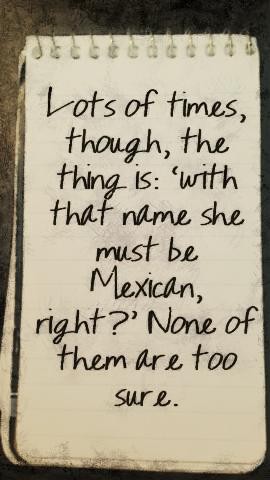 Lots of times,
though, the
thing is: 'with
that name she
must be
Mexican,
right?' None of
them are too
sure.